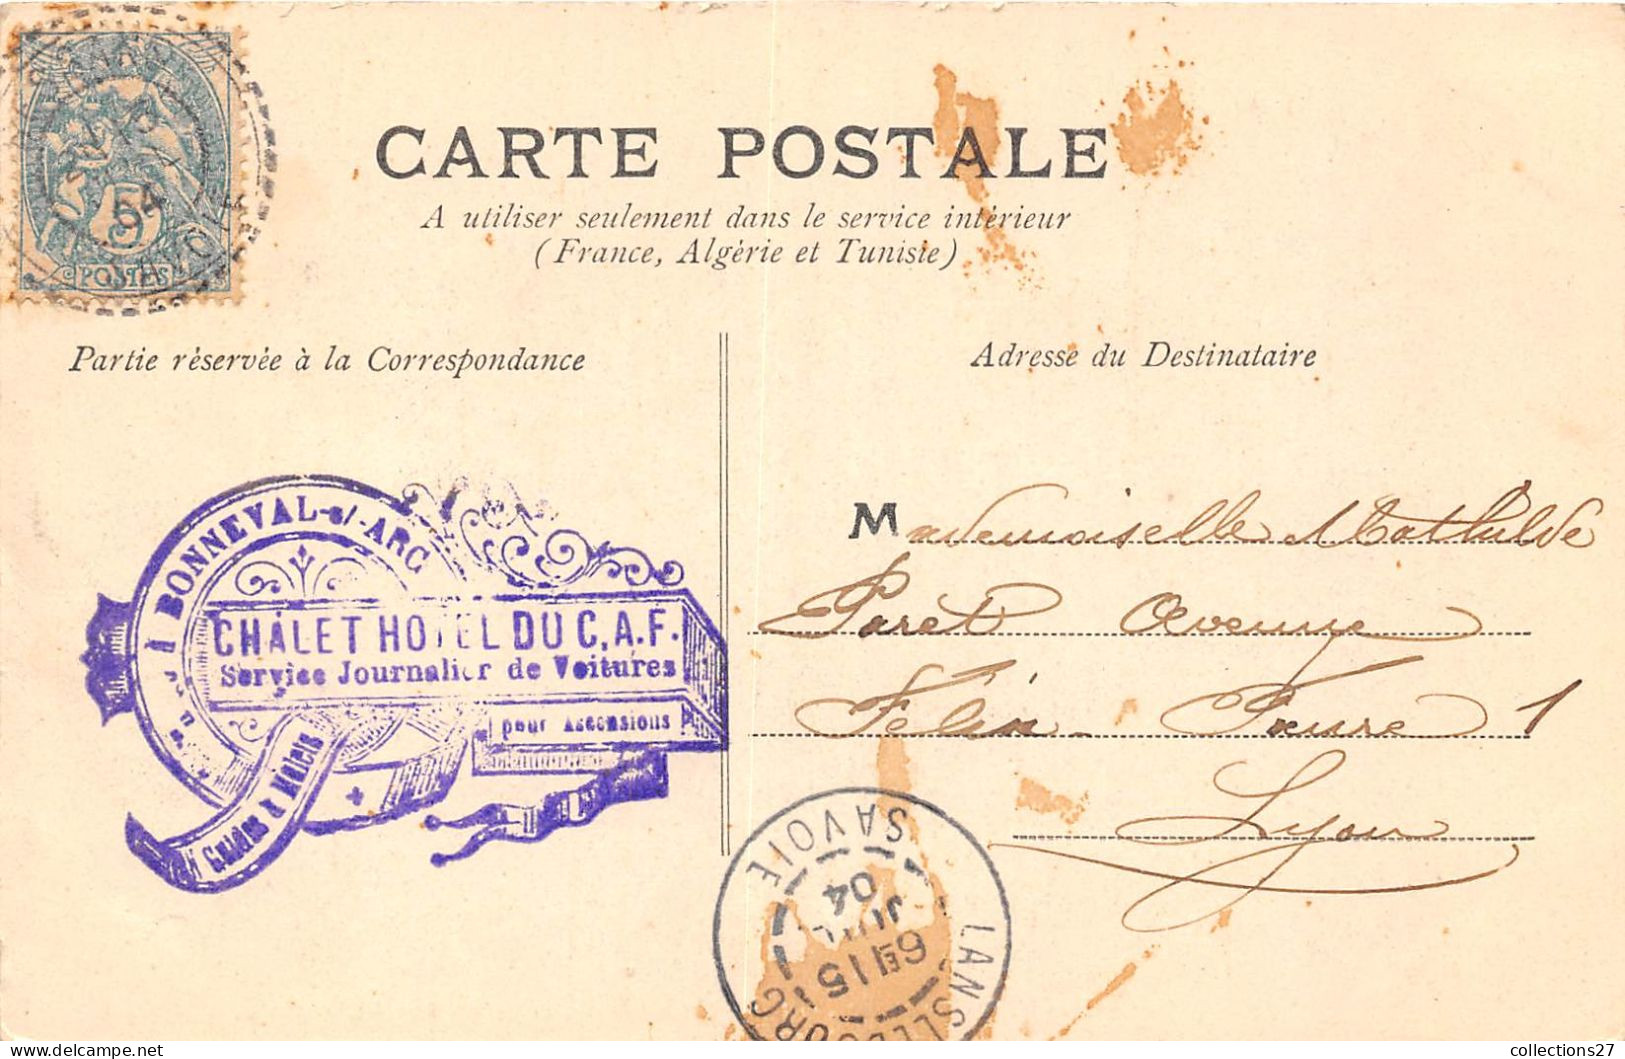 CARTE POSTALE
A utiliser seulement dans le service intérieur
(France, Algérie et Tunisie)
5
POSTES
04
Partie réservée à la Correspondance
Adresse du Destinataire
À BONNEVAL-s/-ARC
CHÂLET HOTEL DU C.A.F.
Service Journalier de Voitures
pour Ascensions
Guides & Mulets
Mademoiselle Mathilde
Paret Avenue
Félix Faure 1
Lyon
LANSLEBOURG
SAVOIE
6E 15
JUIL
04
collections27